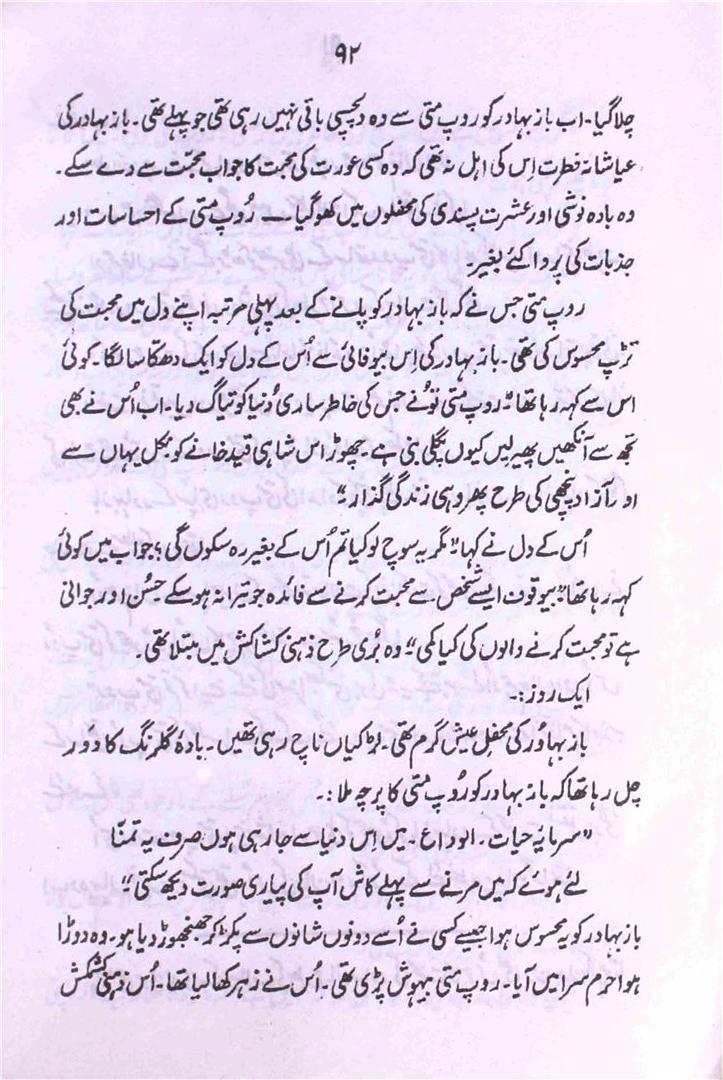 ۹۲
چلا گیا۔ اب باز بہادر کو روپ متی سے وہ دلچسپی باقی نہیں رہی تھی جو پہلے تھی۔ باز بہادر کی
عیاشانہ فطرت اِس کی اہل نہ تھی کہ وہ کسی عورت کی محبت کا جواب محبت سے دے سکے۔
وہ بادہ نوشی اور عشرت پسندی کی محفلوں میں کھو گیا — رُوپ متی کے احساسات اور
جذبات کی پروا کئے بغیر
روپ متی جس نے کہ باز بہادر کو پانے کے بعد پہلی مرتبہ اپنے دل میں محبت کی
تڑپ محسوس کی تھی۔ باز بہادر کی اِس بیوفائی سے اُس کے دل کو ایک دھکا سا لگا۔ کوئی
اس سے کہہ رہا تھا "روپ متی تونے جس کی خاطر ساری دُنیا کو تیاگ دیا۔ اب اُس نے بھی
تجھ سے آنکھیں پھیر لیں کیوں پگلی بنی ہے۔ چھوڑ اس شاہی قید خانے کو نکل یہاں سے
اور آزاد پنچھی کی طرح پھر وہی زندگی گذار"
اُس کے دل نے کہا "مگر یہ سوچ لو کیا تم اُس کے بغیر رہ سکوں گی؟ جواب میں کوئی
کہہ رہا تھا "بیوقوف ایسے شخص سے محبت کرنے سے فائدہ جو تیرا نہ ہو سکے حسُن اور جوانی
ہے تو محبت کرنے والوں کی کیا کمی" وہ بُری طرح ذہنی کشاکش میں مبتلا تھی۔
ایک روز:۔
باز بہادُر کی محفل عیش گرم تھی۔ لڑکیاں ناچ رہی تھیں۔ بادۂ گلرنگ کا دَور
چل رہا تھا کہ باز بہادر کو رُوپ متی کا پرچہ ملا:۔
"سرمایۂ حیات۔ الوداع۔ میں اِس دنیا سے جا رہی ہوں صرف یہ تمنّا
لئے ہوئے کہ میں مرنے سے پہلے کاش آپ کی پیاری صورت دیکھ سکتی"
باز بہادر کو یہ محسوس ہوا جیسے کسی نے اُسے دونوں شانوں سے پکڑ کر جھنجھوڑ دیا ہو۔ وہ دوڑا
ہوا حرم سرا میں آیا۔ روپ متی بیہوش پڑی تھی۔ اُس نے زہر کھا لیا تھا۔ اُس ذہنی کشمکش